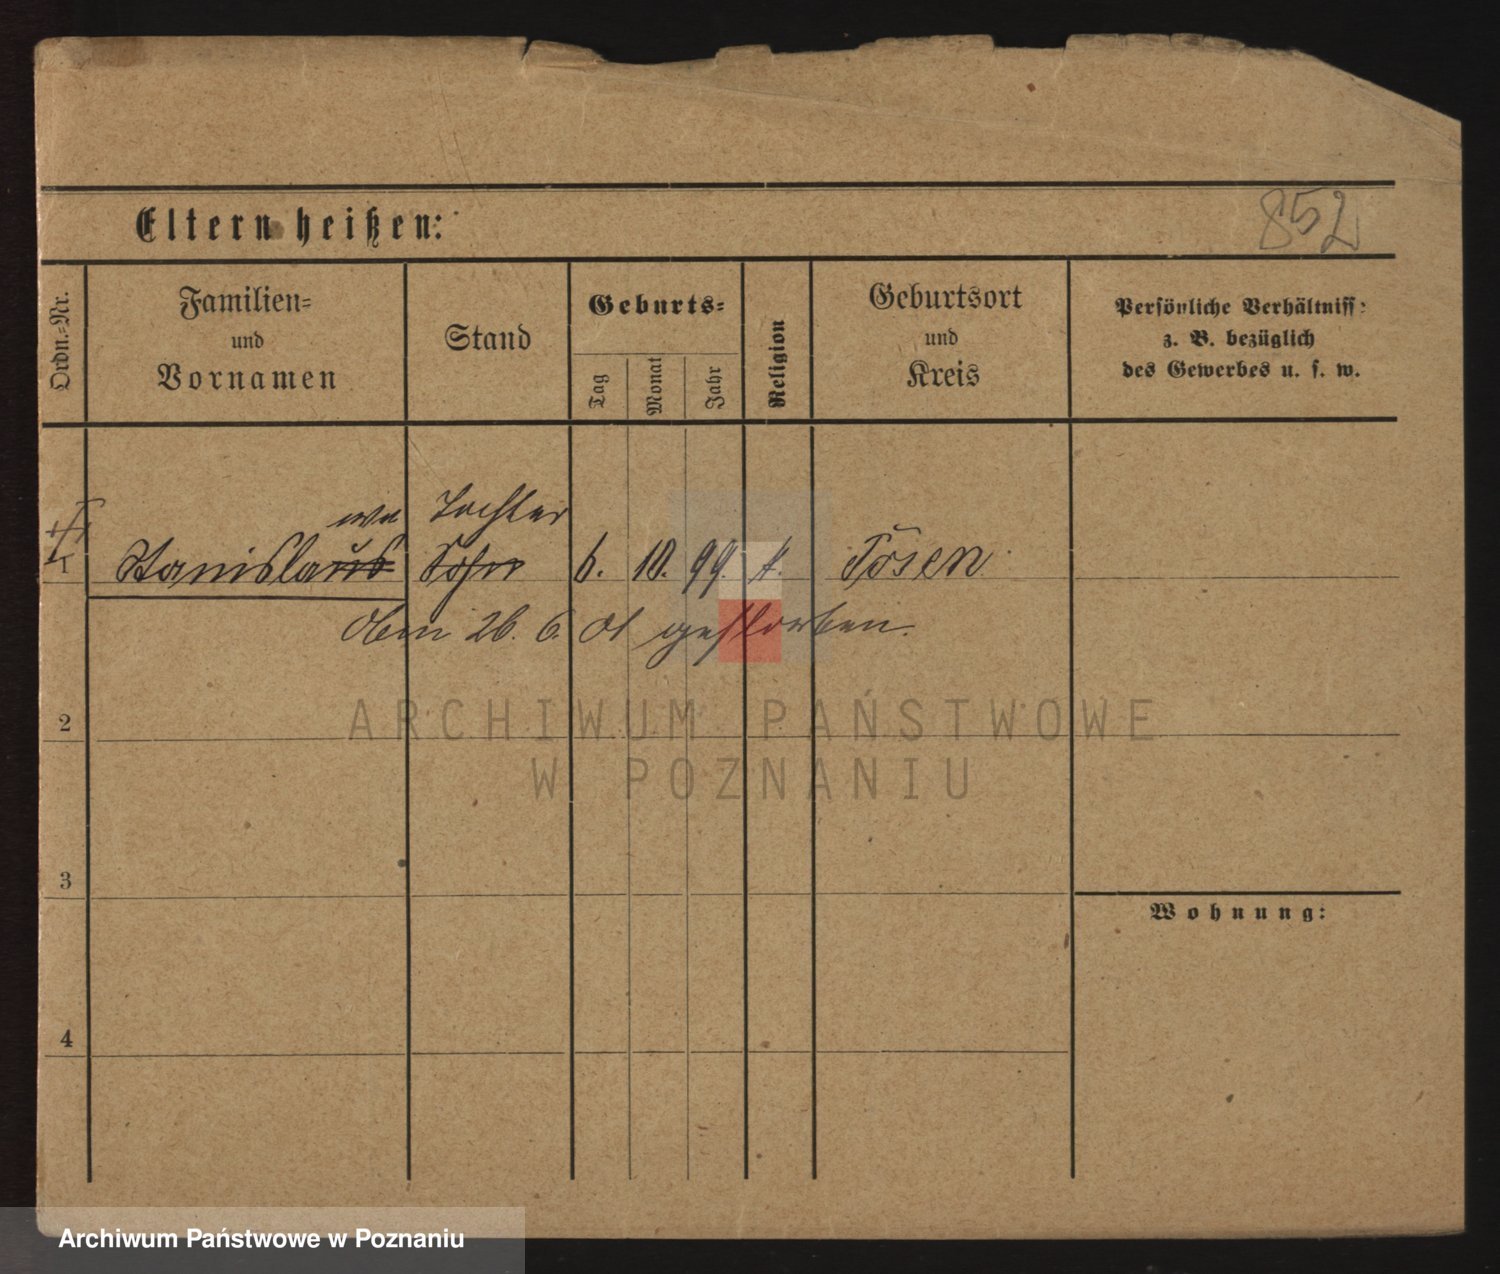 852
Eltern heißen:
Ordn.-Nr.
Familien-
und
Vornamen
Stand
Geburts-
Tag
Monat
Jahr
Religion
Geburtsort
und
Kreis
Persönliche Verhältniss-
z. B. bezüglich
des Gewerbes u. s. w.
wa Tochter
1 Stanislaus Sohn 6. 10. 99. k. Posen
Am 26. 6. 01 gestorben.
ARCHIWUM PAŃSTWOWE
W POZNANIU
2
3
Wohnung:
4
Archiwum Państwowe w Poznaniu